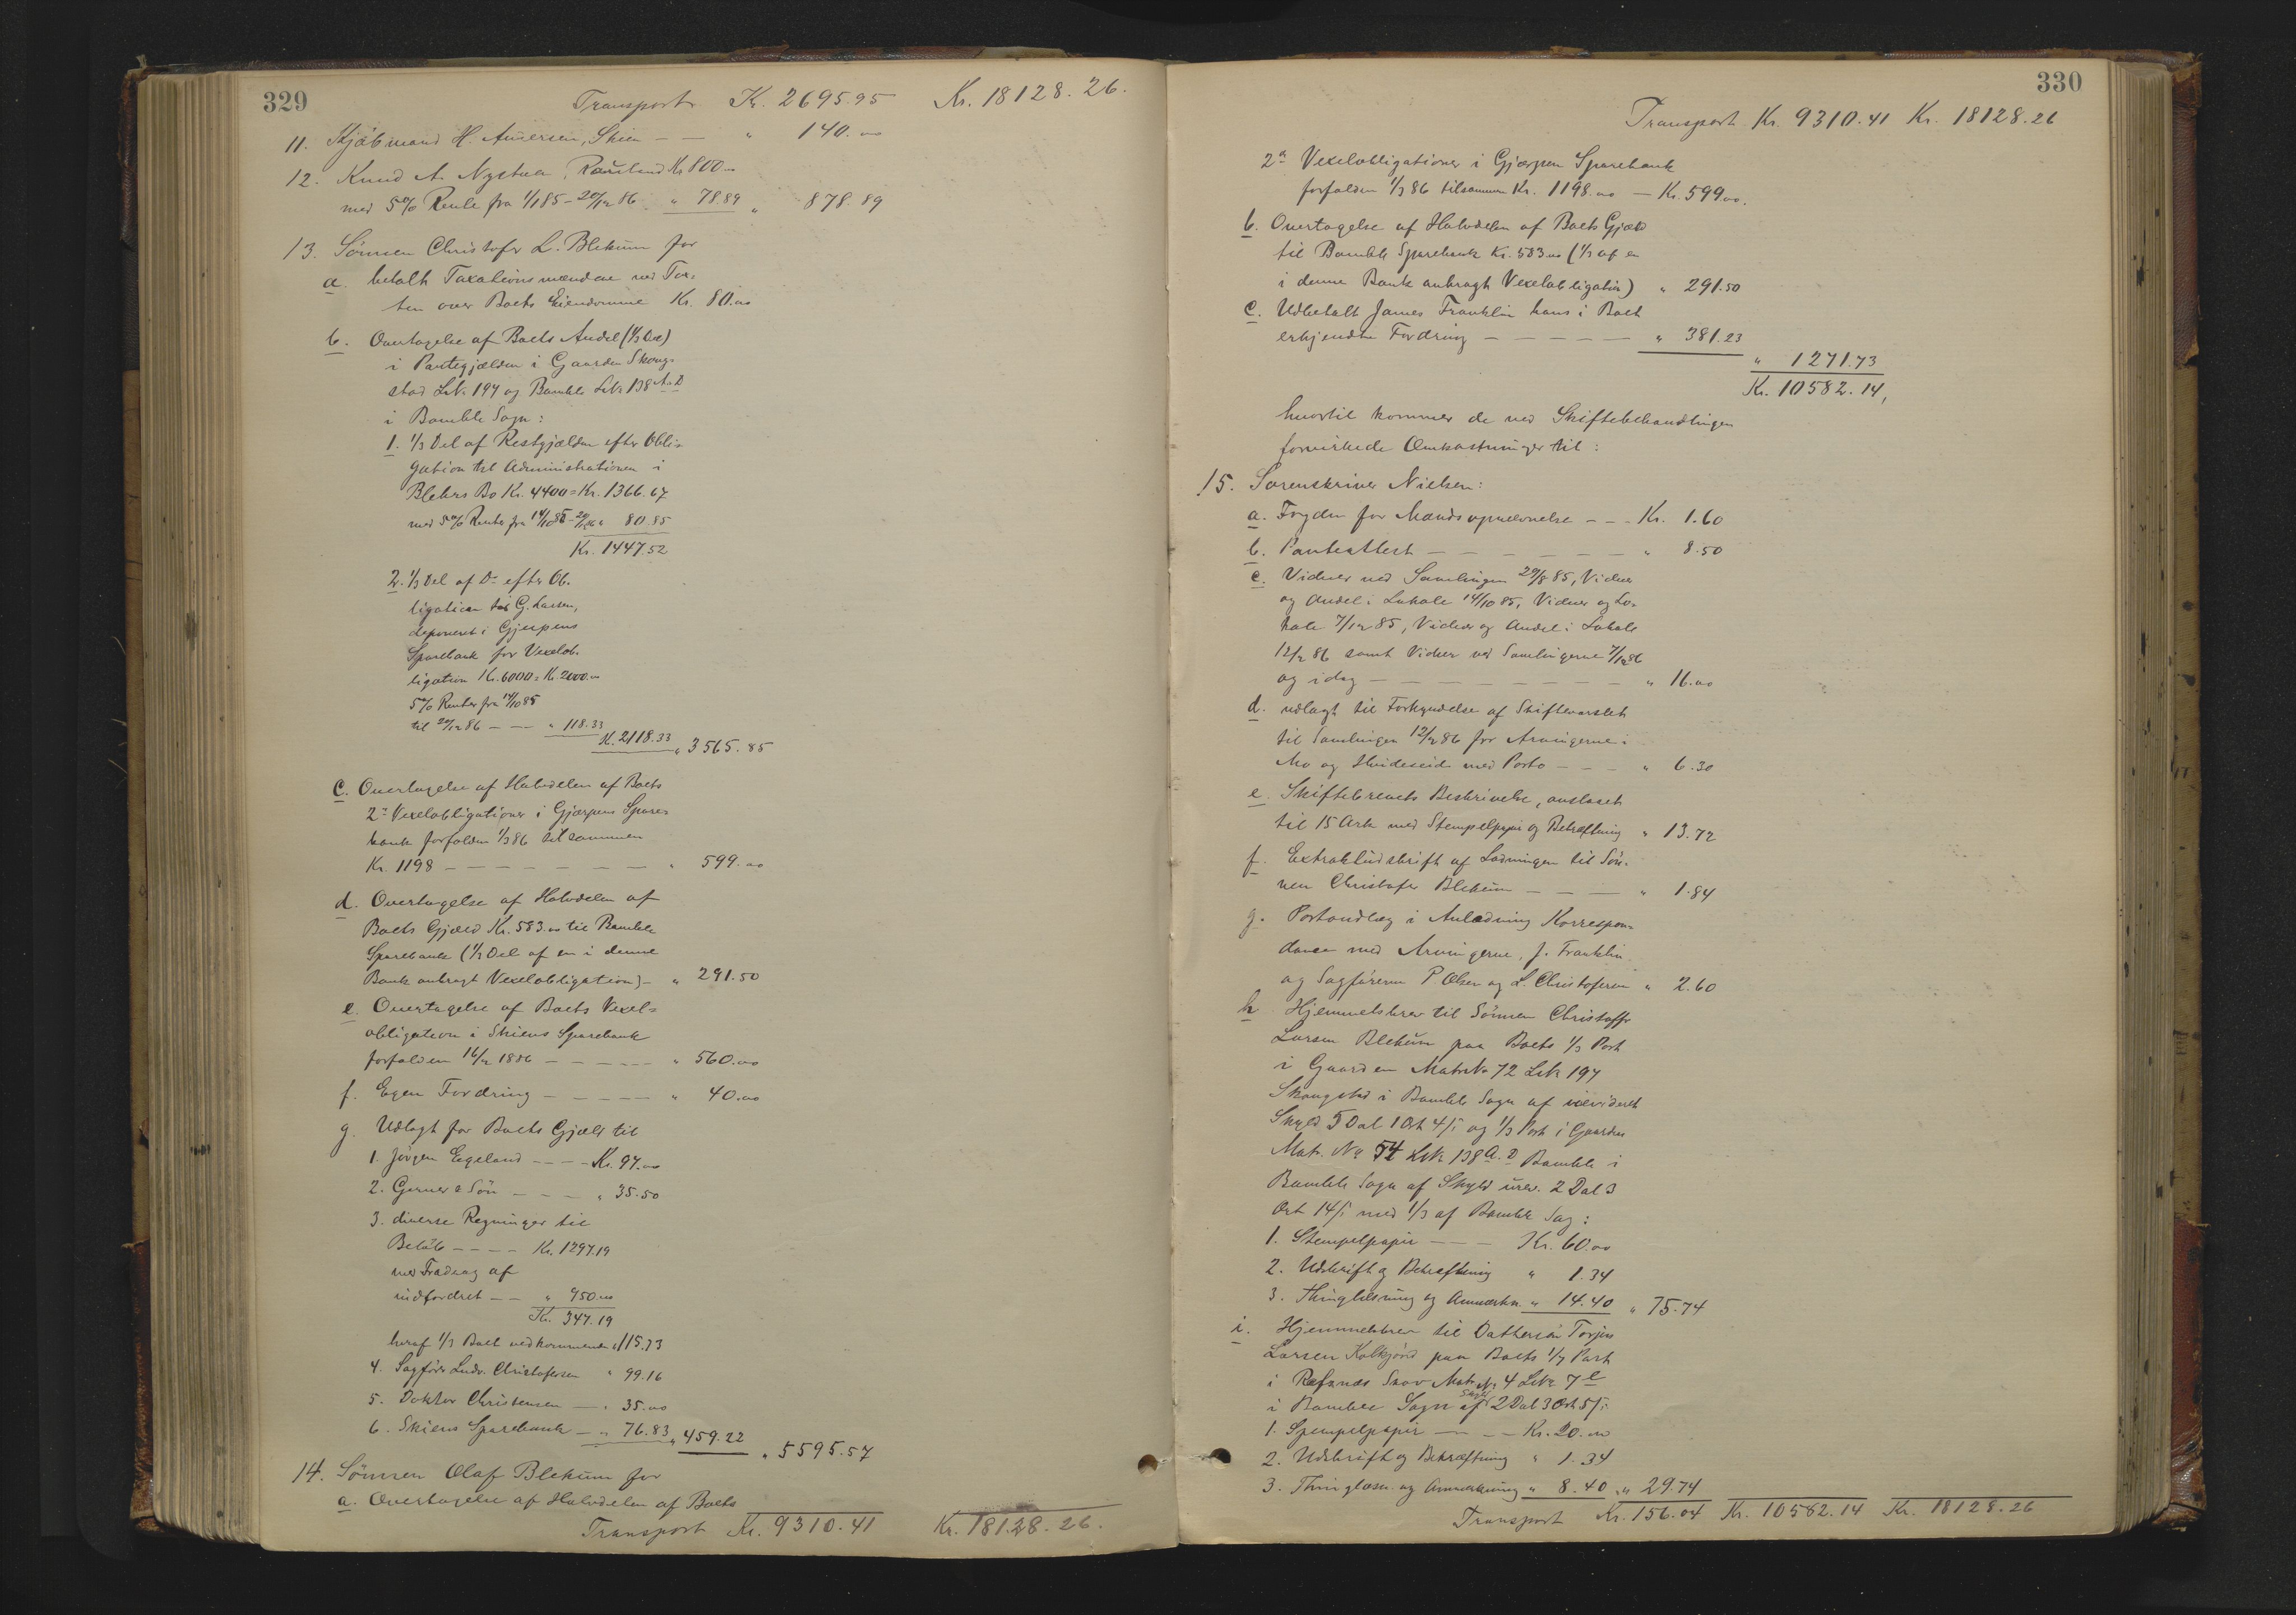 329
Transport Kr. 2695.95 Kr. 18128.26.
11. Kjøbmand H. Amersen, Skien — — " 140.00
12. Knud A. Nystua, Rauland Kr 800.00
med 5% Rente fra 1/1 85 - 20/12 86 " 78.89 " 878.89
13. Sønnen Christofer L. Blekum for
a. betalt Taxationsmændene ved Tax-
ten over Boets Eiendomme Kr. 80.00
b. Overtagelse af Boets Andel (1/3 Del)
i Pantegjælden i Gaarden Skougs-
stad LNr 197 og Bamble LNr 138 A.D
i Bamble Sogn:
1. 1/3 Del af Restgjælden efter Obli-
gation til Administrationen i
Blehrs Bo Kr. 4400 = Kr. 1366.67
med 5% Renter fra 14/10 85 - 20/12 86 " 80.85
Kr. 1447.52
2. 1/3 Del af Do efter Ob-
ligation til G. Larsen,
deponeret i Gjerpens
Sparebank for Vexelob-
ligation Kr. 6000 = Kr. 2000.00
5% Renter fra 14/10 85
til 20/12 86 — — " 118.33
Kr. 2118.33 " 3565.85
c. Overtagelse af Halvdelen af Boets
2de Vexelobligationer i Gjerpens Spare-
bank forfalden 1/3 86 tilsammen
Kr. 1198 — — — — — — " 599.00
d. Overtagelse af Halvdelen af
Boets Gjæld Kr. 583.00 til Bamble
Sparebank (1/3 Del af en i denne
Bank anbragt Vexelobligation) — " 291.50
e. Overtagelse af Boets Vexel-
obligation i Skiens Sparebank
forfalden 16/12 1886 — — — — " 560.00
f. Egen Fordring — — — — " 40.00
g. Udlagt for Boets Gjæld til
1. Jørgen Eegeland — — — Kr. 97.00
2. Gerner & Søn — — — " 35.50
3. diverse Regninger til
Beløb — — — Kr. 1297.19
med Fradrag af
indfordret — — " 950.00
Kr. 347.19
heraf 1/3 Boet vedkommende " 115.73
4. Sagfører Ludv. Christofersen " 99.16
5. Doktor Christensen — " 35.00
6. Skiens Sparebank — " 76.83 " 459.22
" 5595.57
14. Sønnen Olaf Blekum for
a. Overtagelse af Halvdelen af Boets
Transport Kr. 9310.41 Kr. 18128.26.
330
Transport Kr. 9310.41 Kr. 18128.26
2de Vexelobligationer i Gjerpen Sparebank
forfalden 1/3 86 tilsammen Kr. 1198.00 — Kr. 599.00.
b. Overtagelse af Halvdelen af Boets Gjæld
til Bamble Sparebank Kr. 583.00 (1/3 af en
i denne Bank anbragt Vexelobligation) " 291.50
c. Udbetalt James Franklin hans i Boet
erkjendte Fordring — — — — — " 381.23
" 1271.73
Kr. 10582.14,
hvortil kommer de ved Skiftebehandlingen
forvirkede Omkostninger til:
15. Sorenskriver Nielsen:
a. Fogden for Mændsopnævnelse — — — Kr. 1.60
b. Panteattest — — — — — — " 8.50
c. Vidner ved Samlingen 29/8 85, Vidner
og Andel i Lokale 14/10 85, Vidner og Lo-
kale 7/12 85, Vidner og Andel i Lokale
12/2 86 samt Vidner ved Samlingerne 7/12 86
og idag — — — — — — — " 16.00
d. udlagt til Forkyndelse af Skiftevarslet
til Samlingen 12/2 86 for Arvingerne i
Mo og Hvideseid med Porto — — — " 6.30
e. Skiftebrevets Beskrivelse, anslaaet
til 15 Ark med Stempelpapir og Bekræftning " 13.72
f. Extraktudskrift af Lodningen til Søn-
nen Christofer Blekum — — — " 1.84
g. Portoudlæg i Anledning Korrespon-
dancen med Arvingerne, J. Franklin
og Sagførerne P Olsen og L. Christofersen " 2.60
h. Hjemmelsbrev til Sønnen Christoffer
Larsen Blekum paa Boets 1/3 Part
i Gaarden MatrNr 72 LNr 197
Skougstad i Bamble Sogn af urevideret
Skyld 5 Dal 1 Ort 4 /ß og 1/3 Part i Gaarden
Mat. No 54 LNr 138 A. D Bamble i
Bamble Sogn af Skyld urev. 2 Dal 3
Ort 14 /ß med 1/3 af Bamble Sag:
1. Stempelpapir — — — Kr. 60.00
2. Udskrift og Bekræftning " 1.34
3. Thinglæsning og Anmærkn. " 14.40 " 75.74
i. Hjemmelsbrev til Dattersøn Torjus
Larsen Kalkjørd paa Boets 1/7 Part
i Rafnæs Skov Mat.No 4 LNr 7 e
i Bamble Sogn af Skyld 2 Dal 3 Ort 5 /ß:
1. Stempelpapir — — — Kr. 20.00
2. Udskrift og Bekræftning " 1.34
3. Thinglæsn. og Anmærkning " 8.40 " 29.74
Transport Kr. 156.04 Kr. 10582.14 Kr. 18128.26